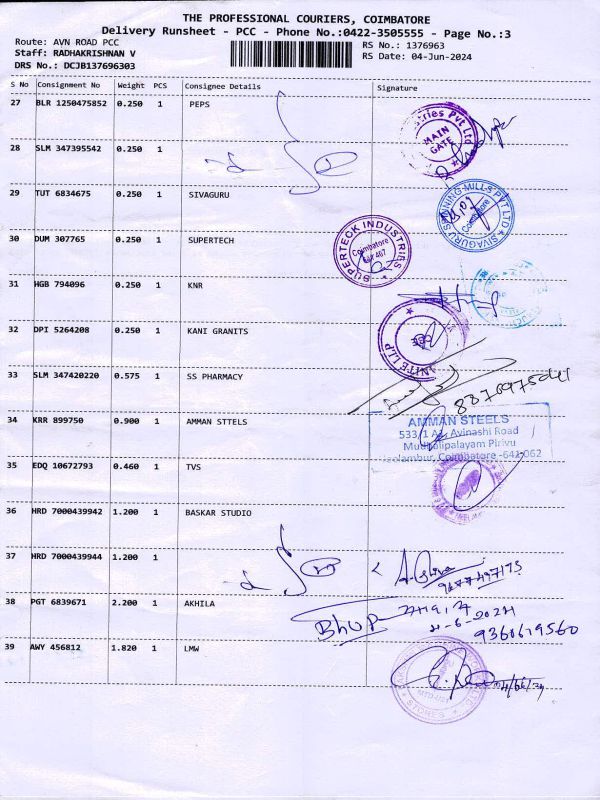 THE PROFESSIONAL COURIERS, COIMBATORE
Delivery Runsheet - PCC - Phone No.:0422-3505555 - Page No.:3
Route: AVN ROAD PCC
RS No.: 1376963
Staff: RADHAKRISHNAN V
RS Date: 04-Jun-2024
DRS No.: DCJB137696303
S No Consignment No Weight PCS Consignee Details Signature
27 BLR 1250475852 0.250 1 PEPS
ries Pvt Ltd
MAIN GATE
28 SLM 347395542 0.250 1
29 TUT 6834675 0.250 1 SIVAGURU
SIVAGURU SPINNING MILLS PVT LTD
Coimbatore
30 DUM 307765 0.250 1 SUPERTECH
SUPERTECK INDUSTRIES
Coimbatore
31 HGB 794096 0.250 1 KNR
32 DPI 5264208 0.250 1 KANI GRANITS
NITE LLP
33 SLM 347420220 0.575 1 SS PHARMACY
34 KRR 899750 0.900 1 AMMAN STTELS
AMMAN STEELS
533/1 A1, Avinashi Road
Mudhalipalayam Pirivu
Coimbatore -641 062
35 EDQ 10672793 0.460 1 TVS
36 HRD 7000439942 1.200 1 BASKAR STUDIO
37 HRD 7000439944 1.200 1
38 PGT 6839671 2.200 1 AKHILA
BhUP
4-6-2024
9360619560
39 AWY 456812 1.820 1 LMW
STORES